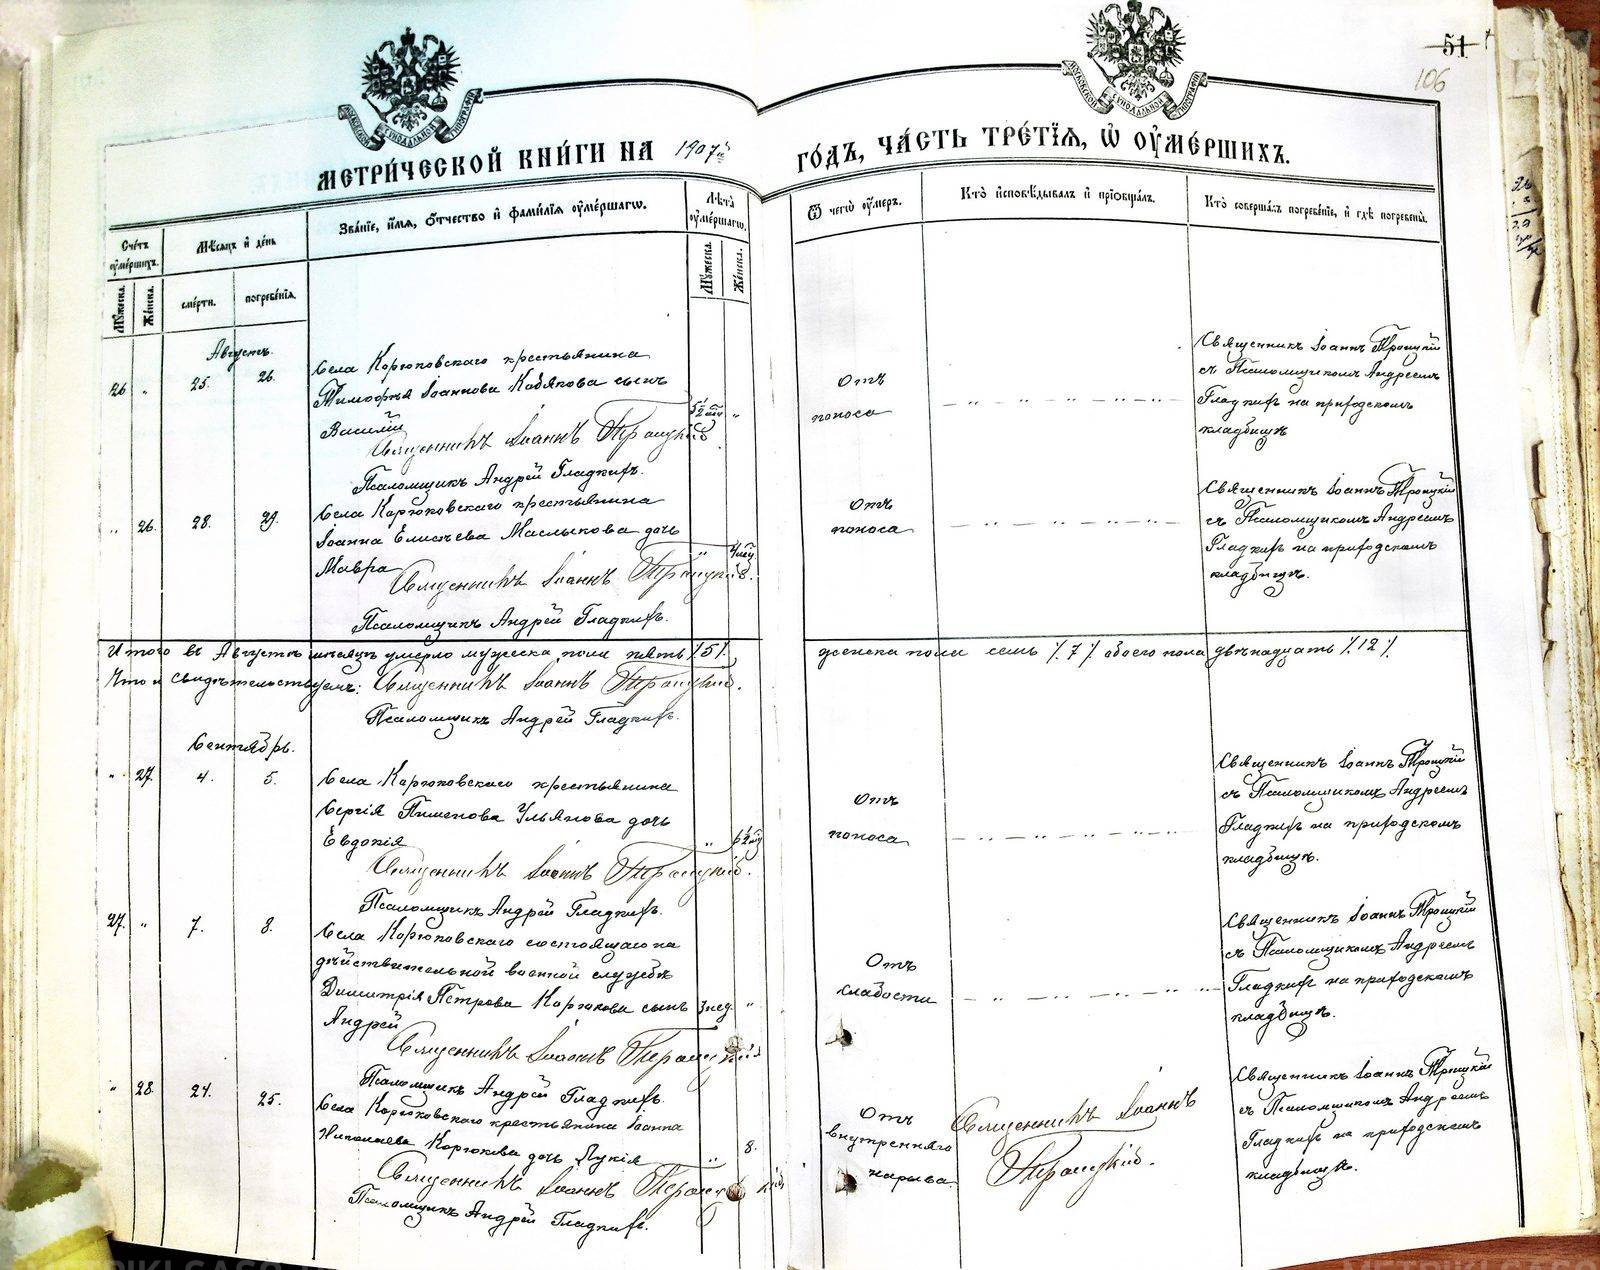 51
106
МОСКОВСКОЙ СѴНОДАЛЬНОЙ ТИПОГРАФІИ
МОСКОВСКОЙ СѴНОДАЛЬНОЙ ТИПОГРАФІИ
МЕТРИ́ЧЕСКОЙ КНИ́ГИ НА 1907й ГО́ДЪ, ЧА́СТЬ ТРЕ́ТІѦ, Ѡ҆ ОУ҆МЕ́РШИХЪ.
Сче́тъ оу҆ме́ршихъ.
Мѣ́сѧцъ и҆ де́нь
Зва́нїе, и҆́мѧ, ѻ҆́тчество и҆ фами́лїѧ оу҆ме́ршагѡ.
Лѣ́та оу҆ме́ршагѡ.
Ѿ чегѡ̀ оу҆́меръ.
Кто̀ и҆сповѣ́дывалъ и҆ прїѡбща́лъ.
Кто̀ соверша́лъ погребе́нїе, и҆ гдѣ̀ погребены̀.
Мꙋ́жеска.
Же́нска.
сме́рти.
погребе́нїѧ.
Мꙋ́жеска.
Же́нска.
Августъ.
26 „ 25. 26.
Села Корюковскаго крестьянина
Тимофѣя Іоаннова Кобякова сынъ
Василій
Священникъ Іоаннъ Троицкій
Псаломщикъ Андрей Гладкихъ.
Отъ
поноса
Священникъ Іоаннъ Троицкій
съ Псаломщикомъ Андреемъ
Гладкихъ на приходскомъ
кладбищѣ
„ 26. 28. 29.
Села Корюковскаго крестьянина
Іоанна Елисѣева Маслыкова дочь
Мавра
„ 4 мѣс.
Священникъ Іоаннъ Троицкій
Псаломщикъ Андрей Гладкихъ.
Отъ
поноса
Священникъ Іоаннъ Троицкій
съ Псаломщикомъ Андреемъ
Гладкихъ на приходскомъ
кладбищѣ.
Итого въ Августѣ мѣсяцѣ умерло мужеска пола пять /5/. женска пола семь /.7/. обоего пола двѣнадцать /.12/.
Что и свидѣтельствуемъ: Священникъ Іоаннъ Троицкій.
Псаломщикъ Андрей Гладкихъ.
Сентябрь.
„ 27. 4. 5.
Села Корюковскаго крестьянина
Сергія Пименова Ульянова дочь
Евдокія
„ 6½ мѣс
Священникъ Іоаннъ Троицкій.
Псаломщикъ Андрей Гладкихъ.
Отъ
поноса
Священникъ Іоаннъ Троицкій
съ Псаломщикомъ Андреемъ
Гладкихъ на приходскомъ
кладбищѣ.
27. „ 7. 8.
Села Корюковскаго состоящаго на
дѣйствительной военной службѣ
Димитрія Петрова Корюкова сынъ
Андрей
3 нед. „
Священникъ Іоаннъ Троицкій
Псаломщикъ Андрей Гладкихъ.
Отъ
слабости
Священникъ Іоаннъ Троицкій
съ Псаломщикомъ Андреемъ
Гладкихъ на приходскомъ
кладбищѣ.
„ 28. 24. 25.
Села Корюковскаго крестьянина Іоанна
Николаева Корюкова дочь Лукія
„ 8.
Священникъ Іоаннъ Троицкій
Псаломщикъ Андрей Гладкихъ.
Отъ
внутренняго
нарыва.
Священникъ Іоаннъ
Троицкій.
Священникъ Іоаннъ Троицкій
съ Псаломщикомъ Андреемъ
Гладкихъ на приходскомъ
кладбищѣ.